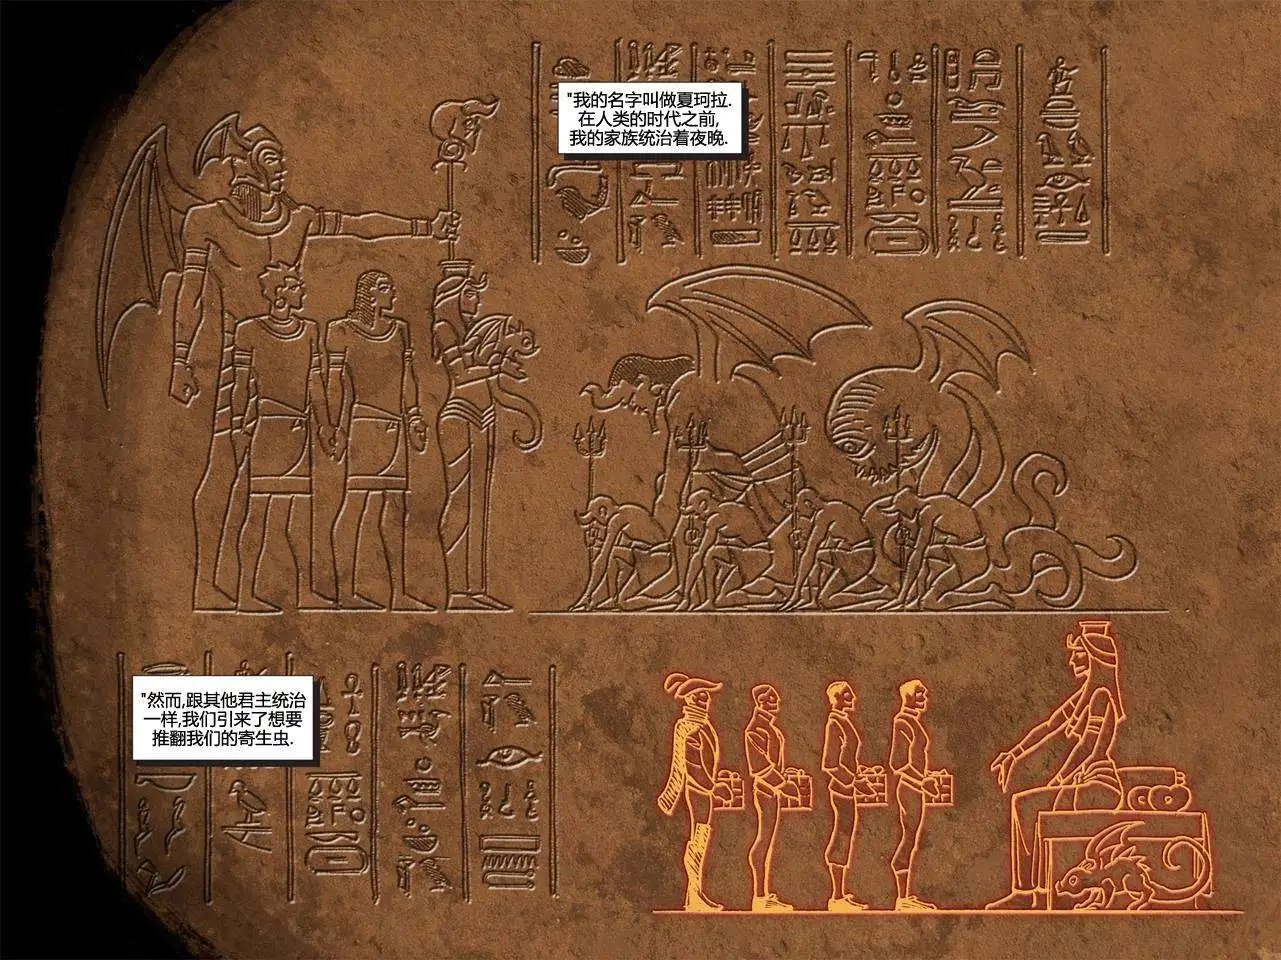 "我的名字叫做夏珂拉.
在人类的时代之前,
我的家族统治着夜晚.
"然而,跟其他君主统治
一样,我们引来了想要
推翻我们的寄生虫.